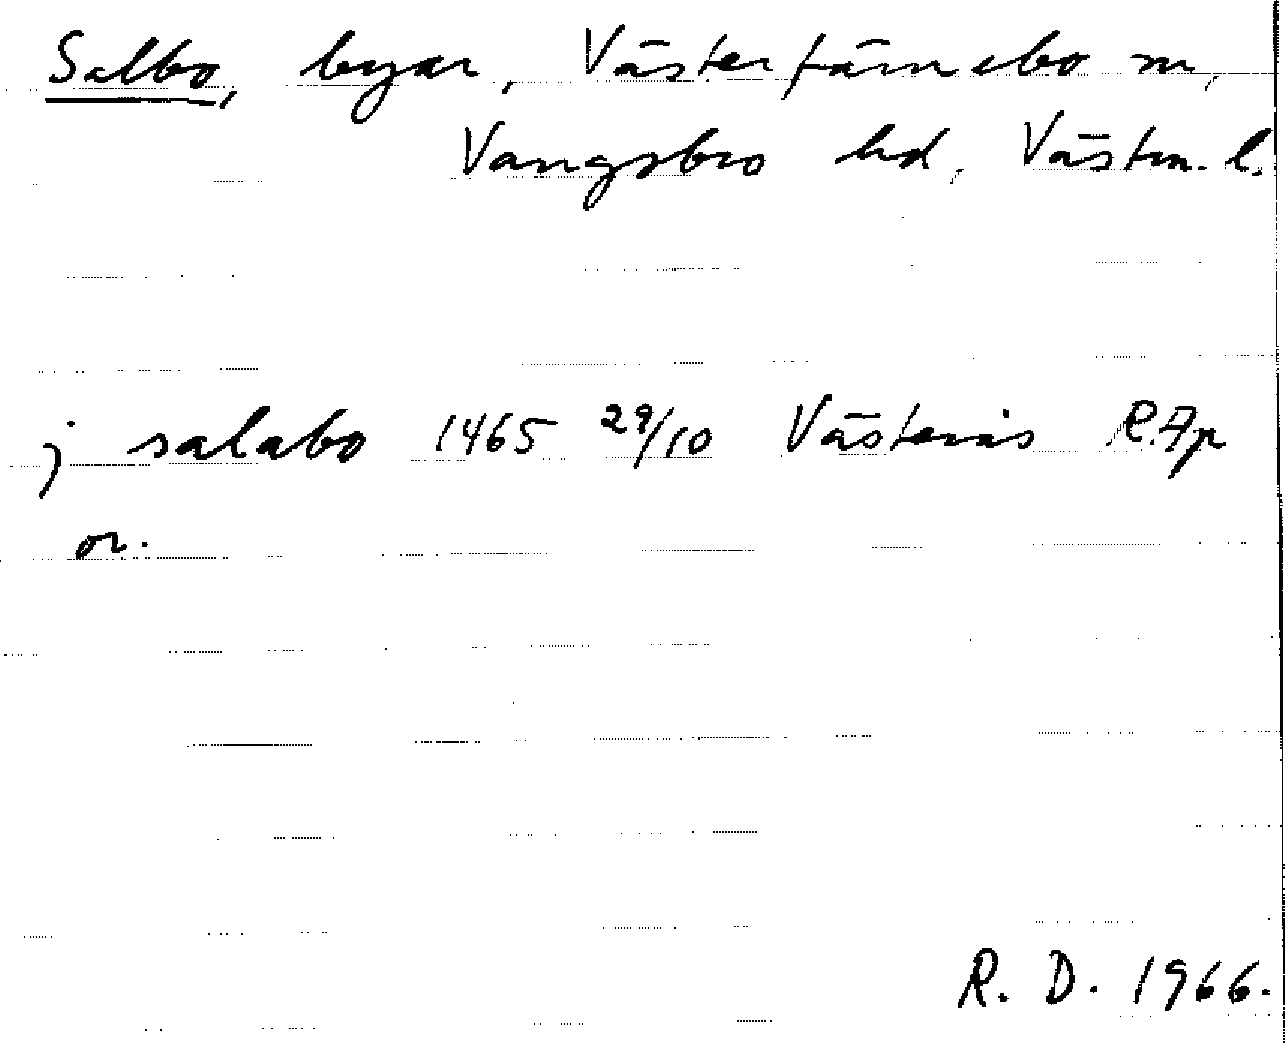 Salbo, byar, Västerfärnebo sn,
Vangsbro hd, Västm. l.
j salabo 1465 29/10 Västerås RAp
or.
R. D. 1966.